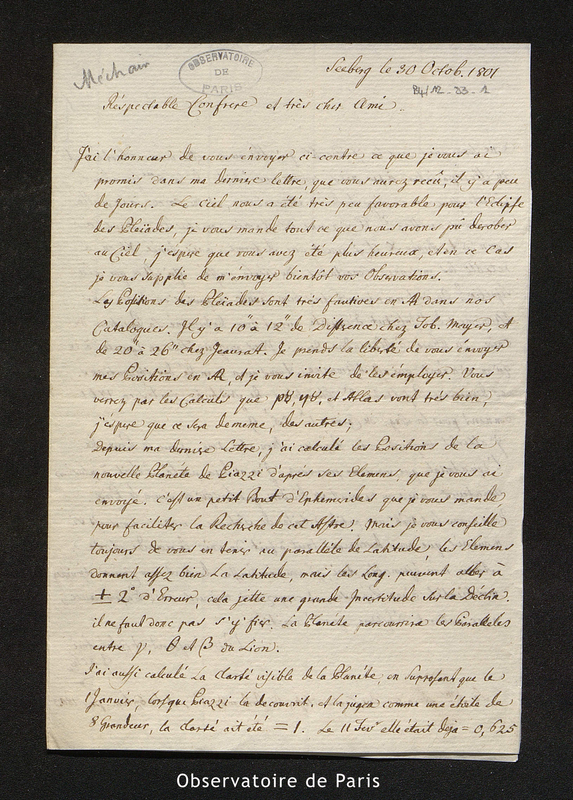 Méchain
OBSERVATOIRE
DE
PARIS
Seeberg le 30 Octob. 1801
Réspectable Confrere et très cher Ami
J'ai l'honneur de vous énvoyer ci-contre ce que je vous ai
promis dans ma derniere lettre, que vous aurez recû, il y a peu
de Jours. Le Ciel nous a été très peu favorable pour l'Eclipse
des Pleiades, je vous mande tout ce que nous avons pû derober
au Ciel. j'espere que vous avez été plus heureux, et en ce cas
je vous supplie de m'énvoyer bientôt vos Observations.
Les Positions des Pleiades sont très fautives en AR dans nos
Catalogues. Il y a 10" à 12" de Difference chez Tob. Mayer, et
de 20" à 26" chez Jeaurat. Je prends la liberté de vous énvoyer
mes Positions en AR, et je vous invite de les émployer. Vous
verrez par les Calculs que et Atlas vont très bien,
j'espere que ce sera de meme, des autres;
Depuis ma derniere Lettre, j'ai calculé les Positions de la
nouvelle Planéte de Piazzi d'après ses Elemens, que je vous ai
envoyé. c'est un petit Bout d'Ephemerides que je vous mande
pour faciliter la Recherche de cet Astre, mais je vous conseille
toujours de vous en tenir au paralléle de Latitude, les Elemens
donnent assez bien La Latitude, mais les Long. peuvent aller à
± 2° d'Erreur, cela jette une grande Incertitude sur la Declin.
il ne faut donc pas s'y fier. La Planete parcourira les Paralleles
entre γ, θ et β du Lion.
J'ai aussi calculé La clarté visible de la Planéte, en suposant que le
1 Janvier, lorsque Piazzi la decouvrit, et la jugea comme une étoile de
8 Grandeur, la clarté ait été = 1. Le 11 Fevr elle était deja = 0,625
Observatoire de Paris